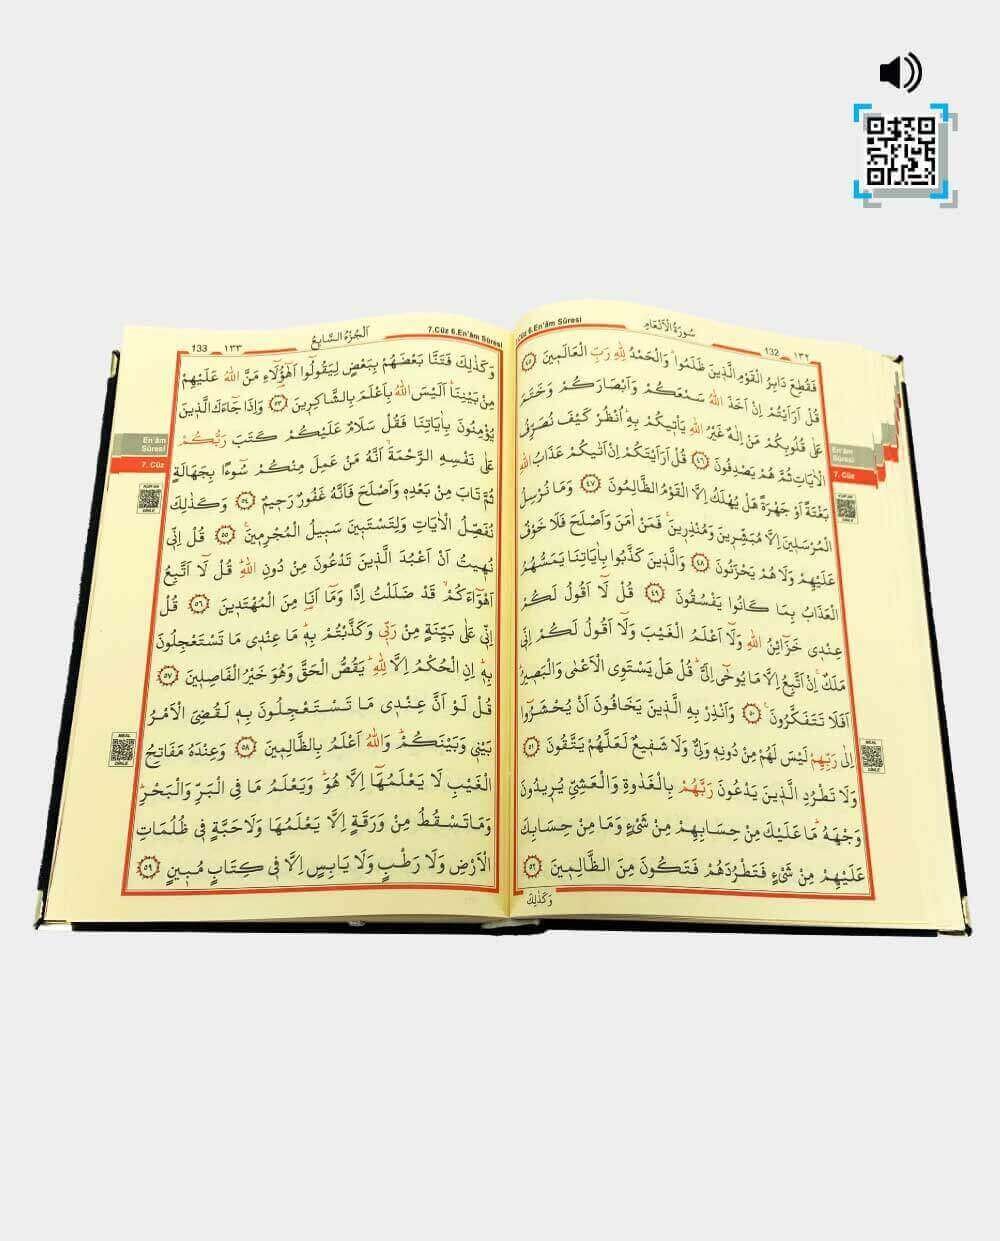 7.Cüz 6.En'âm Sûresi
سُورَةُ الْاَنْعَامِ
132
١٣٢
فَقُطِعَ دَابِرُ الْقَوْمِ الَّذ۪ينَ ظَلَمُواۜ وَالْحَمْدُ لِلّٰهِ رَبِّ الْعَالَم۪ينَ ﴿٤٥﴾
قُلْ اَرَاَيْتُمْ اِنْ اَخَذَ اللّٰهُ سَمْعَكُمْ وَاَبْصَارَكُمْ وَخَتَمَ
عَلٰى قُلُوبِكُمْ مَنْ اِلٰهٌ غَيْرُ اللّٰهِ يَأْت۪يكُمْ بِهِۜ اُنْظُرْ كَيْفَ نُصَرِّفُ
الْاٰيَاتِ ثُمَّ هُمْ يَصْدِفُونَ ﴿٤٦﴾ قُلْ اَرَاَيْتَكُمْ اِنْ اَتٰيكُمْ عَذَابُ اللّٰهِ
بَغْتَةً اَوْ جَهْرَةً هَلْ يُهْلَكُ اِلَّا الْقَوْمُ الظَّالِمُونَ ﴿٤٧﴾ وَمَا نُرْسِلُ
الْمُرْسَل۪ينَ اِلَّا مُبَشِّر۪ينَ وَمُنْذِر۪ينَۚ فَمَنْ اٰمَنَ وَاَصْلَحَ فَلَا خَوْفٌ
عَلَيْهِمْ وَلَا هُمْ يَحْزَنُونَ ﴿٤٨﴾ وَالَّذ۪ينَ كَذَّبُوا بِاٰيَاتِنَا يَمَسُّهُمُ
الْعَذَابُ بِمَا كَانُوا يَفْسُقُونَ ﴿٤٩﴾ قُلْ لَٓا اَقُولُ لَكُمْ
عِنْد۪ي خَزَٓائِنُ اللّٰهِ وَلَٓا اَعْلَمُ الْغَيْبَ وَلَٓا اَقُولُ لَكُمْ اِنّ۪ي
مَلَكٌۚ اِنْ اَتَّبِعُ اِلَّا مَا يُوحٰٓى اِلَيَّۜ قُلْ هَلْ يَسْتَوِي الْاَعْمٰى وَالْبَص۪يرُۜ
اَفَلَا تَتَفَكَّرُونَ۟ ﴿٥٠﴾ وَاَنْذِرْ بِهِ الَّذ۪ينَ يَخَافُونَ اَنْ يُحْشَرُٓوا
اِلٰى رَبِّهِمْ لَيْسَ لَهُمْ مِنْ دُونِه۪ وَلِيٌّ وَلَا شَف۪يعٌ لَعَلَّهُمْ يَتَّقُونَ ﴿٥١﴾
وَلَا تَطْرُدِ الَّذ۪ينَ يَدْعُونَ رَبَّهُمْ بِالْغَدٰوةِ وَالْعَشِيِّ يُر۪يدُونَ
وَجْهَهُۜ مَا عَلَيْكَ مِنْ حِسَابِهِمْ مِنْ شَيْءٍ وَمَا مِنْ حِسَابِكَ
عَلَيْهِمْ مِنْ شَيْءٍ فَتَطْرُدَهُمْ فَتَكُونَ مِنَ الظَّالِم۪ينَ ﴿٥٢﴾
وَكَذٰلِكَ
En'âm
Sûresi
7. Cüz
133
١٣٣
اَلْجُزْءُ السَّابِعُ
7.Cüz 6.En'âm Sûresi
وَكَذٰلِكَ فَتَنَّا بَعْضَهُمْ بِبَعْضٍ لِيَقُولُٓوا اَهٰٓؤُ۬لَٓاءِ مَنَّ اللّٰهُ عَلَيْهِمْ
مِنْ بَيْنِنَاۜ اَلَيْسَ اللّٰهُ بِاَعْلَمَ بِالشَّاكِر۪ينَ ﴿٥٣﴾ وَاِذَا جَٓاءَكَ الَّذ۪ينَ
يُؤْمِنُونَ بِاٰيَاتِنَا فَقُلْ سَلَامٌ عَلَيْكُمْ كَتَبَ رَبُّكُمْ
عَلٰى نَفْسِهِ الرَّحْمَةَۙ اَنَّهُ مَنْ عَمِلَ مِنْكُمْ سُٓوءًا بِجَهَالَةٍ
ثُمَّ تَابَ مِنْ بَعْدِه۪ وَاَصْلَحَ فَاَنَّهُ غَفُورٌ رَح۪يمٌ ﴿٥٤﴾ وَكَذٰلِكَ
نُفَصِّلُ الْاٰيَاتِ وَلِتَسْتَب۪ينَ سَب۪يلُ الْمُجْرِم۪ينَ۟ ﴿٥٥﴾ قُلْ اِنّ۪ي
نُه۪يتُ اَنْ اَعْبُدَ الَّذ۪ينَ تَدْعُونَ مِنْ دُونِ اللّٰهِۜ قُلْ لَٓا اَتَّبِعُ
اَهْوَٓاءَكُمْۙ قَدْ ضَلَلْتُ اِذًا وَمَٓا اَنَا۬ مِنَ الْمُهْتَد۪ينَ ﴿٥٦﴾ قُلْ
اِنّ۪ي عَلٰى بَيِّنَةٍ مِنْ رَبّ۪ي وَكَذَّبْتُمْ بِه۪ۜ مَا عِنْد۪ي مَا تَسْتَعْجِلُونَ
بِه۪ۜ اِنِ الْحُكْمُ اِلَّا لِلّٰهِۜ يَقُصُّ الْحَقَّ وَهُوَ خَيْرُ الْفَاصِل۪ينَ ﴿٥٧﴾
قُلْ لَوْ اَنَّ عِنْد۪ي مَا تَسْتَعْجِلُونَ بِه۪ لَقُضِيَ الْاَمْرُ
بَيْن۪ي وَبَيْنَكُمْۜ وَاللّٰهُ اَعْلَمُ بِالظَّالِم۪ينَ ﴿٥٨﴾ وَعِنْدَهُ مَفَاتِحُ
الْغَيْبِ لَا يَعْلَمُهَٓا اِلَّا هُوَۜ وَيَعْلَمُ مَا فِي الْبَرِّ وَالْبَحْرِۜ
وَمَا تَسْقُطُ مِنْ وَرَقَةٍ اِلَّا يَعْلَمُهَا وَلَا حَبَّةٍ ف۪ي ظُلُمَاتِ
الْاَرْضِ وَلَا رَطْبٍ وَلَا يَابِسٍ اِلَّا ف۪ي كِتَابٍ مُب۪ينٍ ﴿٥٩﴾
En'âm
Sûresi
7. Cüz